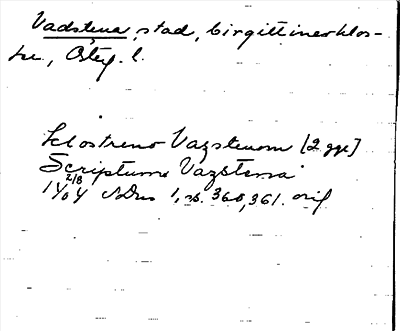 Vadstena, stad, birgittinerklos-
ter, Östg. l.
klostreno Vazstenom [2 ggr]
Scriptum Vazstena
14 2/8 04 SDns 1, s. 360, 361. orig